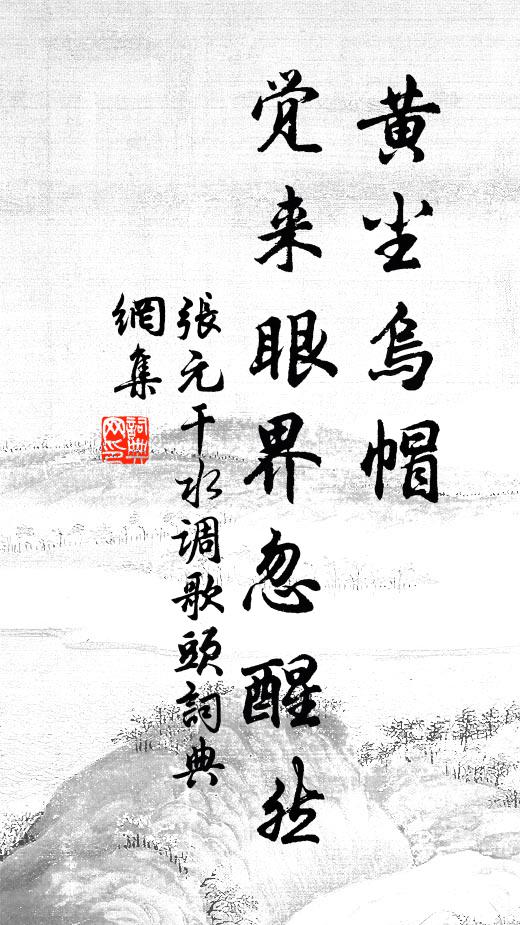 黄尘乌帽
觉来眼界忽醒然
張元干水调歌頭詞典
網集
詞典
网印